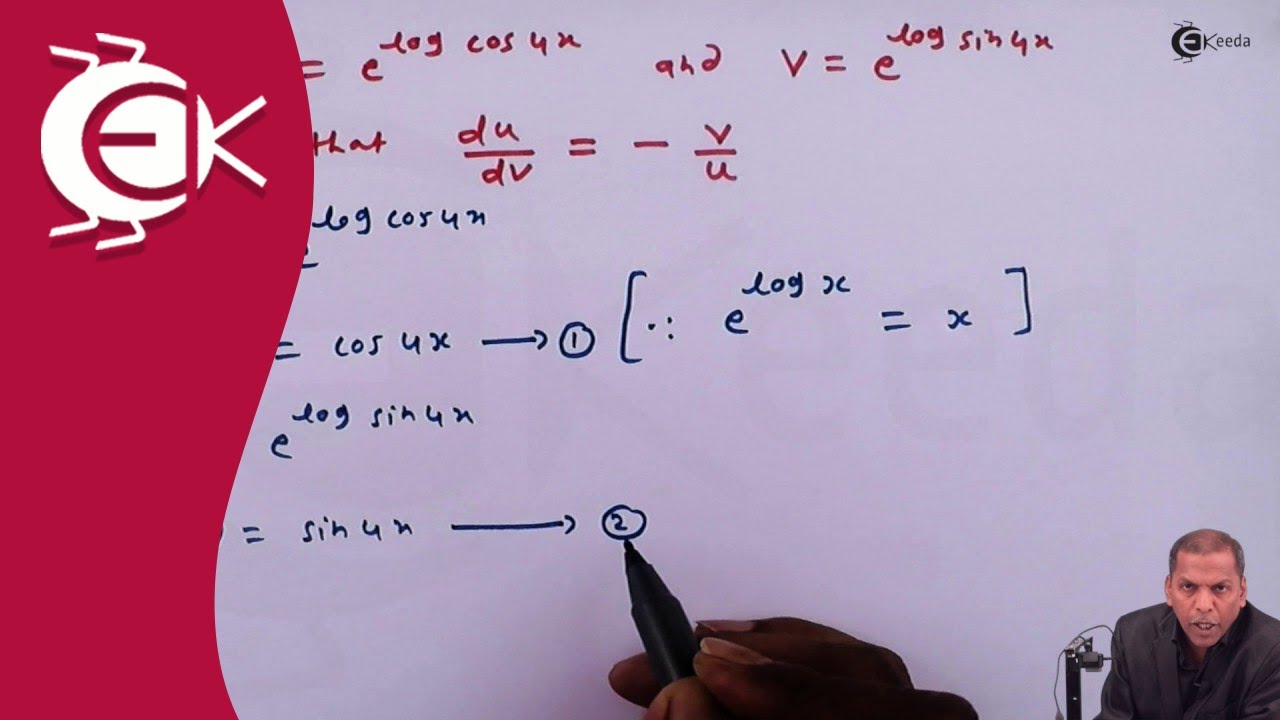 EK
EKeeda
= e^{log cos 4x} and v = e^{log sin 4x}
that du/dv = - v/u
e^{log cos 4x}
= cos 4x → ① [∵ e^{log x} = x]
e^{log sin 4x}
= sin 4x → ②